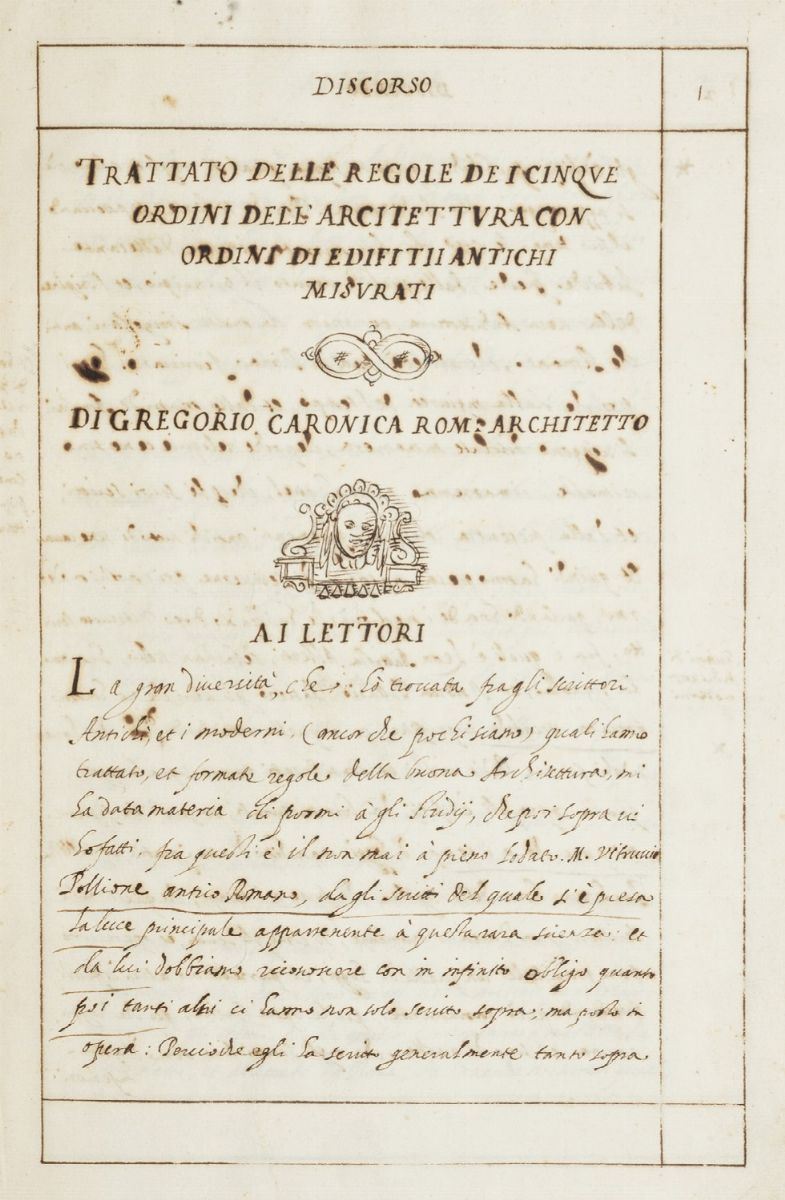 DISCORSO
1
TRATTATO DELLE REGOLE DE I CINQVE
ORDINI DELL'ARCITETTVRA CON
ORDINI DI EDIFITII ANTICHI
MISVRATI
DI GREGORIO CARONICA ROM: ARCHITETTO
AI LETTORI
La gran diversità, che hò trovata fra gli scrittori
Antichi, et i moderni, (ancor che pochi siano) quali hanno
trattato, et formate regole della buona Architettura, mi
ha data materia di pormi à gli Studij, che poi sopra vi
ho fatti. fra questi è il non mai à pieno lodato. M. Vitruvio
Pollione antico Romano, da gli scritti del quale s'è presa
la luce principale appartenente à questa rara scienza: et
da lui dobbiamo riconoscere con in infinito obligo quanto
poi tanti altri ci hanno non solo scritto sopra, ma posto in
opera: Perciò che egli ha scritto generalmente tanto sopra